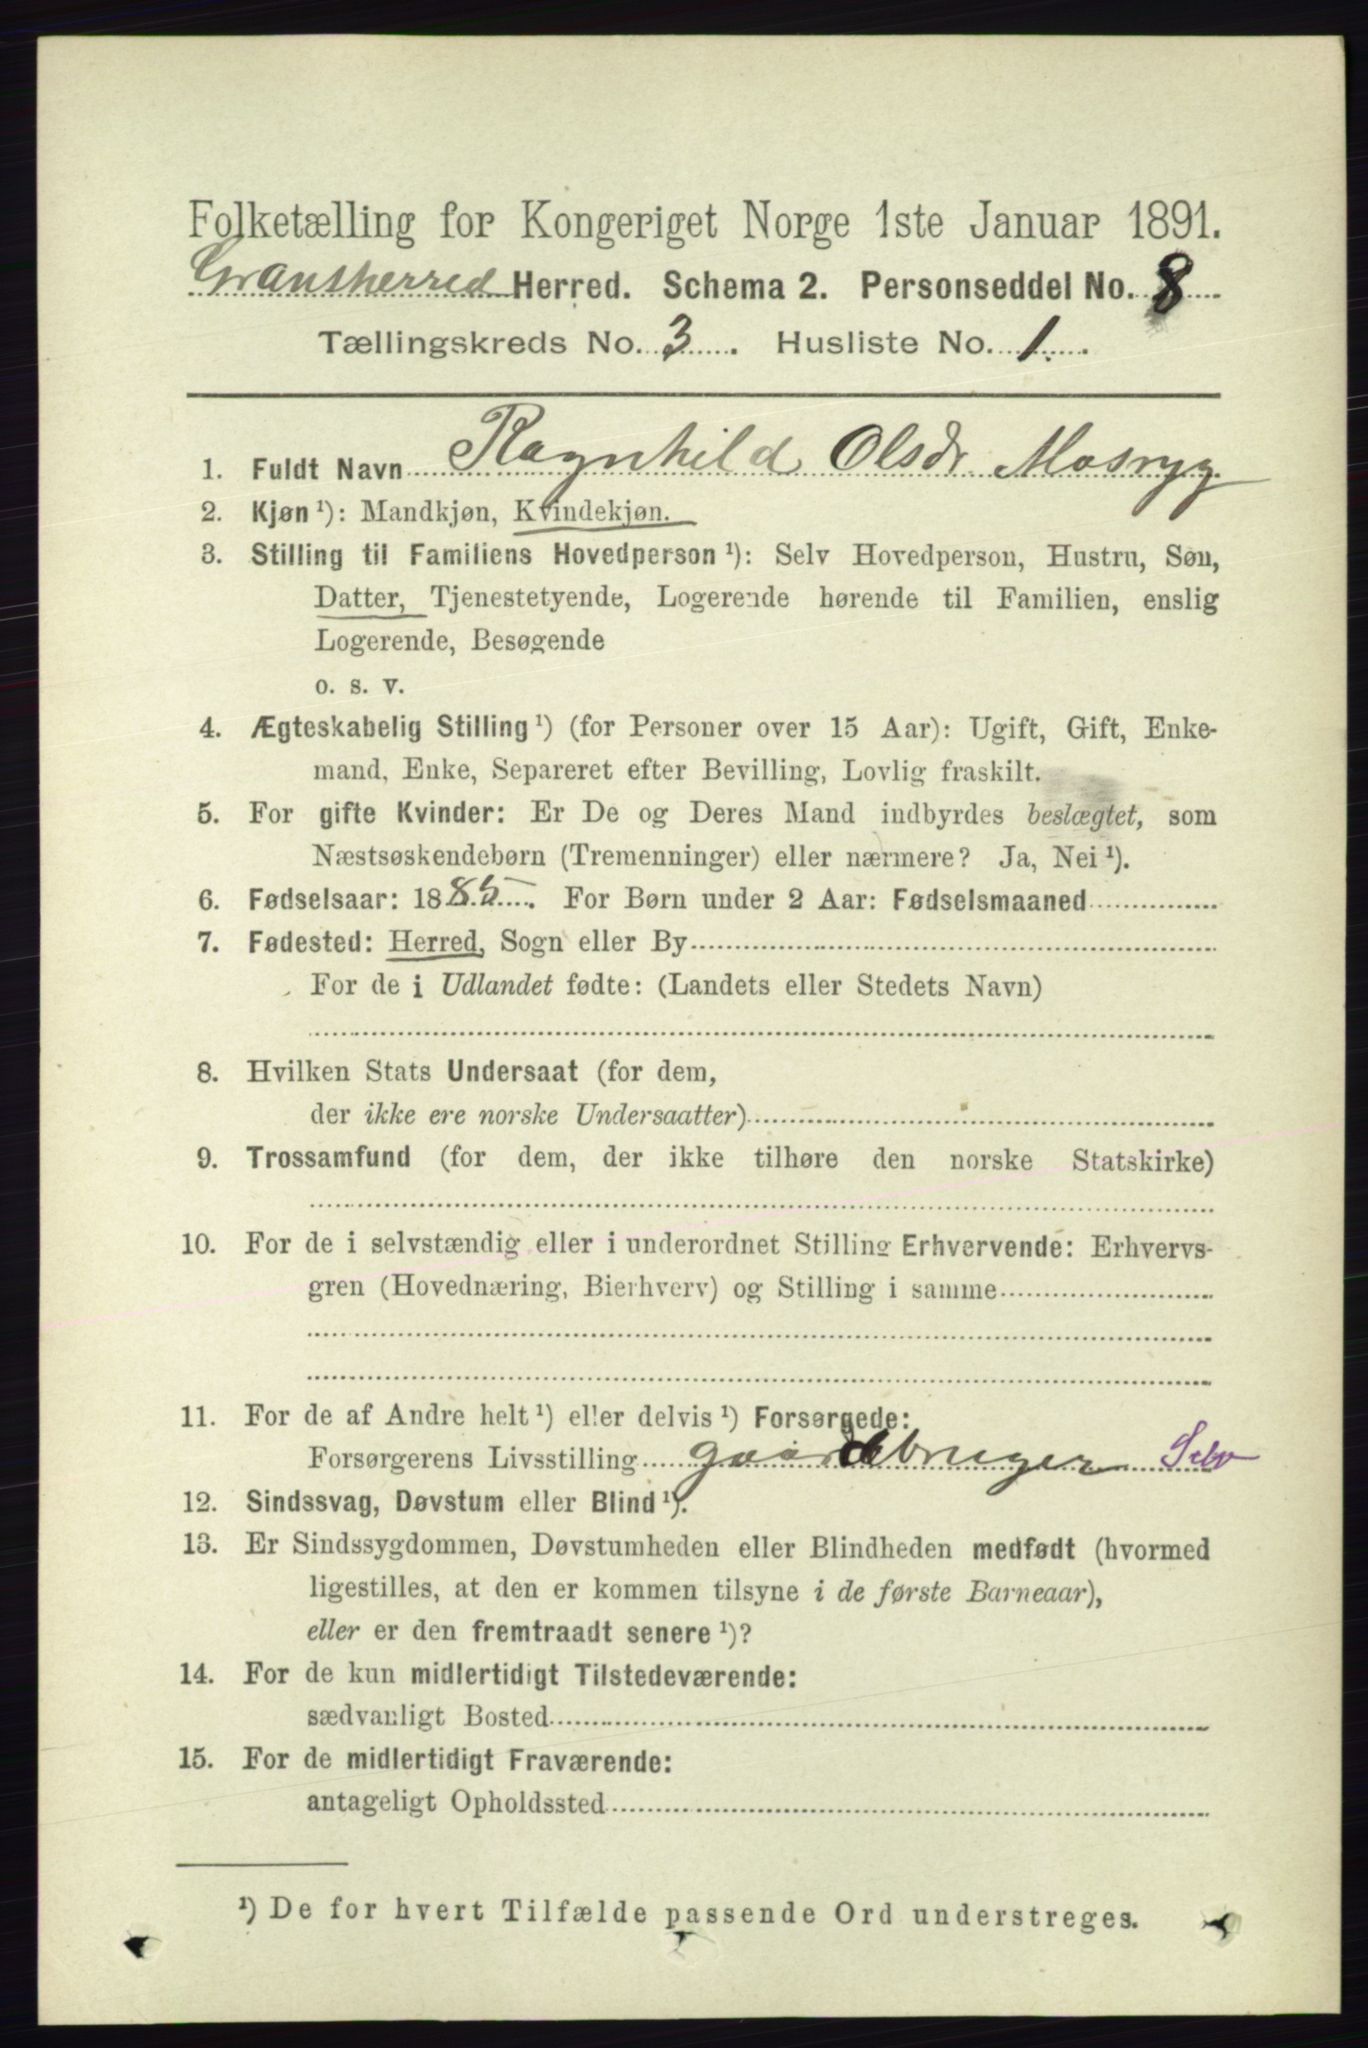 Folketælling for Kongeriget Norge 1ste Januar 1891.
Gransherred Herred. Schema 2. Personseddel No. 8
Tællingskreds No. 3. Husliste No. 1.
1. Fuldt Navn Ragnhild Olsdr Mosryg
2. Kjøn ¹): Mandkjøn, Kvindekjøn.
3. Stilling til Familiens Hovedperson ¹): Selv Hovedperson, Hustru, Søn,
Datter, Tjenestetyende, Logerende hørende til Familien, enslig
Logerende, Besøgende
o. s. v.
4. Ægteskabelig Stilling ¹) (for Personer over 15 Aar): Ugift, Gift, Enke-
mand, Enke, Separeret efter Bevilling, Lovlig fraskilt.
5. For gifte Kvinder: Er De og Deres Mand indbyrdes beslægtet, som
Næstsøskendebørn (Tremenninger) eller nærmere? Ja, Nei ¹).
6. Fødselsaar: 1885. For Børn under 2 Aar: Fødselsmaaned
7. Fødested: Herred, Sogn eller By
For de i Udlandet fødte: (Landets eller Stedets Navn)
8. Hvilken Stats Undersaat (for dem,
der ikke ere norske Undersaatter)
9. Trossamfund (for dem, der ikke tilhøre den norske Statskirke)
10. For de i selvstændig eller i underordnet Stilling Erhvervende: Erhvervs-
gren (Hovednæring, Bierhverv) og Stilling i samme
11. For de af Andre helt ¹) eller delvis ¹) Forsørgede:
Forsørgerens Livsstilling gaardbruger Selv
12. Sindssvag, Døvstum eller Blind ¹).
13. Er Sindssygdommen, Døvstumheden eller Blindheden medfødt (hvormed
ligestilles, at den er kommen tilsyne i de første Barneaar),
eller er den fremtraadt senere ¹)?
14. For de kun midlertidigt Tilstedeværende:
sædvanligt Bosted
15. For de midlertidigt Fraværende:
antageligt Opholdssted
¹) De for hvert Tilfælde passende Ord understreges.